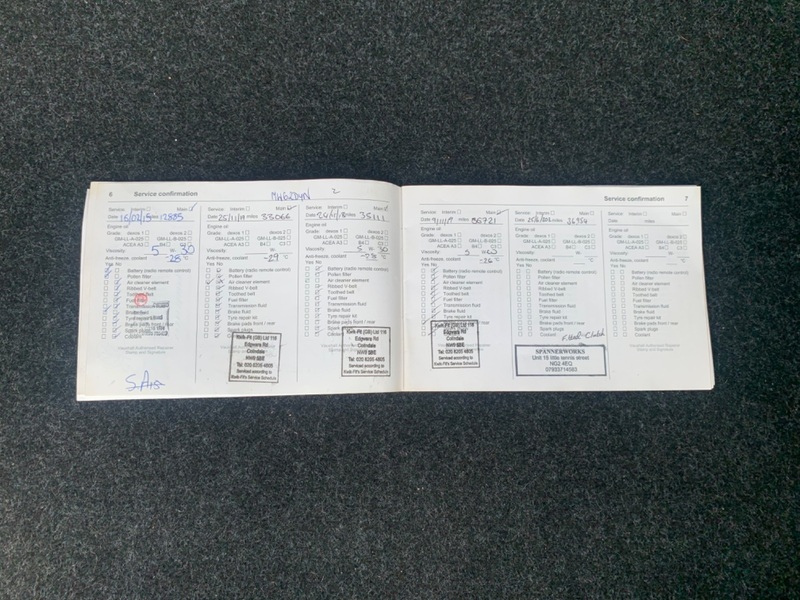 6
Service confirmation
MH62DYN
2
Service: Interim Main
Date 16/02/15 miles 12885
Engine oil
Grade: dexos 1 dexos 2
GM-LL-A-025 GM-LL-B-025
ACEA A3 B4 C3
Viscosity 5 W- 30
Anti-freeze, coolant -28 °C
Yes No
Battery (radio remote control)
Pollen filter
Air cleaner element
Ribbed V-belt
Toothed belt
Fuel
Brake fluid
Tyre repair kit
Brake pads front / rear
Spark plugs
Vauxhall Authorised Repairer
Stamp and Signature
Service: Interim Main
Date 25/11/17 miles 33066
Engine oil
Grade: dexos 1 dexos 2
GM-LL-A-025 GM-LL-B-025
ACEA A3 B4 C3
Viscosity W-
Anti-freeze, coolant -29 °C
Yes No
Battery (radio remote control)
Pollen filter
Air cleaner element
Ribbed V-belt
Toothed belt
Fuel filter
Transmission fluid
Brake fluid
Tyre repair kit
Brake pads front / rear
Spark plugs
Kwik-Fit (GB) Ltd 116
Edgware Rd
Colindale
NW9 5BE
Tel: 020 8205 4805
Serviced according to
Kwik-Fit's Service Schedule
Service: Interim Main
Date 24/11/18 miles 35111
Engine oil
Grade: dexos 1 dexos 2
GM-LL-A-025 GM-LL-B-025
ACEA A3 B4 C3
Viscosity 5 W- 30
Anti-freeze, coolant -28 °C
Yes No
Battery (radio remote control)
Pollen filter
Air cleaner element
Ribbed V-belt
Toothed belt
Fuel filter
Transmission fluid
Brake fluid
Tyre repair kit
Brake pads front / rear
Spark
Kwik-Fit (GB) Ltd 116
Edgware Rd
Colindale
NW9 5BE
Tel: 020 8205 4805
Serviced according to
Kwik-Fit's Service Schedule
Service confirmation
7
Service: Interim Main
Date miles 35721
Engine oil
Grade: dexos 1 dexos 2
GM-LL-A-025 GM-LL-B-025
ACEA A3 B4 C3
Viscosity 5
Anti-freeze, coolant -26 °C
Yes No
Battery (radio remote control)
Pollen filter
Air cleaner element
Ribbed V-belt
Toothed belt
Fuel filter
Transmission fluid
Brake fluid
Tyre repair kit
Brake pads front / rear
Spark plugs
Coolant
Kwik-Fit (GB) Ltd 116
Edgware Rd
Colindale
NW9 5BE
Tel: 020 8205 4805
Serviced according to
Kwik-Fit's Service Schedule
Service: Interim Main
Date miles
Engine oil
Grade: dexos 1 dexos 2
GM-LL-A-025 GM-LL-B-025
ACEA A3 B4 C3
Viscosity W-
Anti-freeze, coolant °C
Yes No
Battery (radio remote control)
Pollen filter
Air cleaner element
Ribbed V-belt
Toothed belt
Fuel filter
Transmission fluid
Brake fluid
Tyre repair kit
Brake pads front / rear
Spark plugs
Coolant
Vauxhall Authorised Repairer
Stamp and Signature
SPANNERWORKS
Unit 15 little tennis street
NG2 4EQ
07955714563
Service: Interim Main
Date miles
Engine oil
Grade: dexos 1 dexos 2
GM-LL-A-025 GM-LL-B-025
ACEA A3 B4 C3
Viscosity W-
Anti-freeze, coolant °C
Yes No
Battery (radio remote control)
Pollen filter
Air cleaner element
Ribbed V-belt
Toothed belt
Fuel filter
Transmission fluid
Brake fluid
Tyre repair kit
Brake pads front / rear
Spark plugs
Coolant
Vauxhall Authorised Repairer
Stamp and Signature